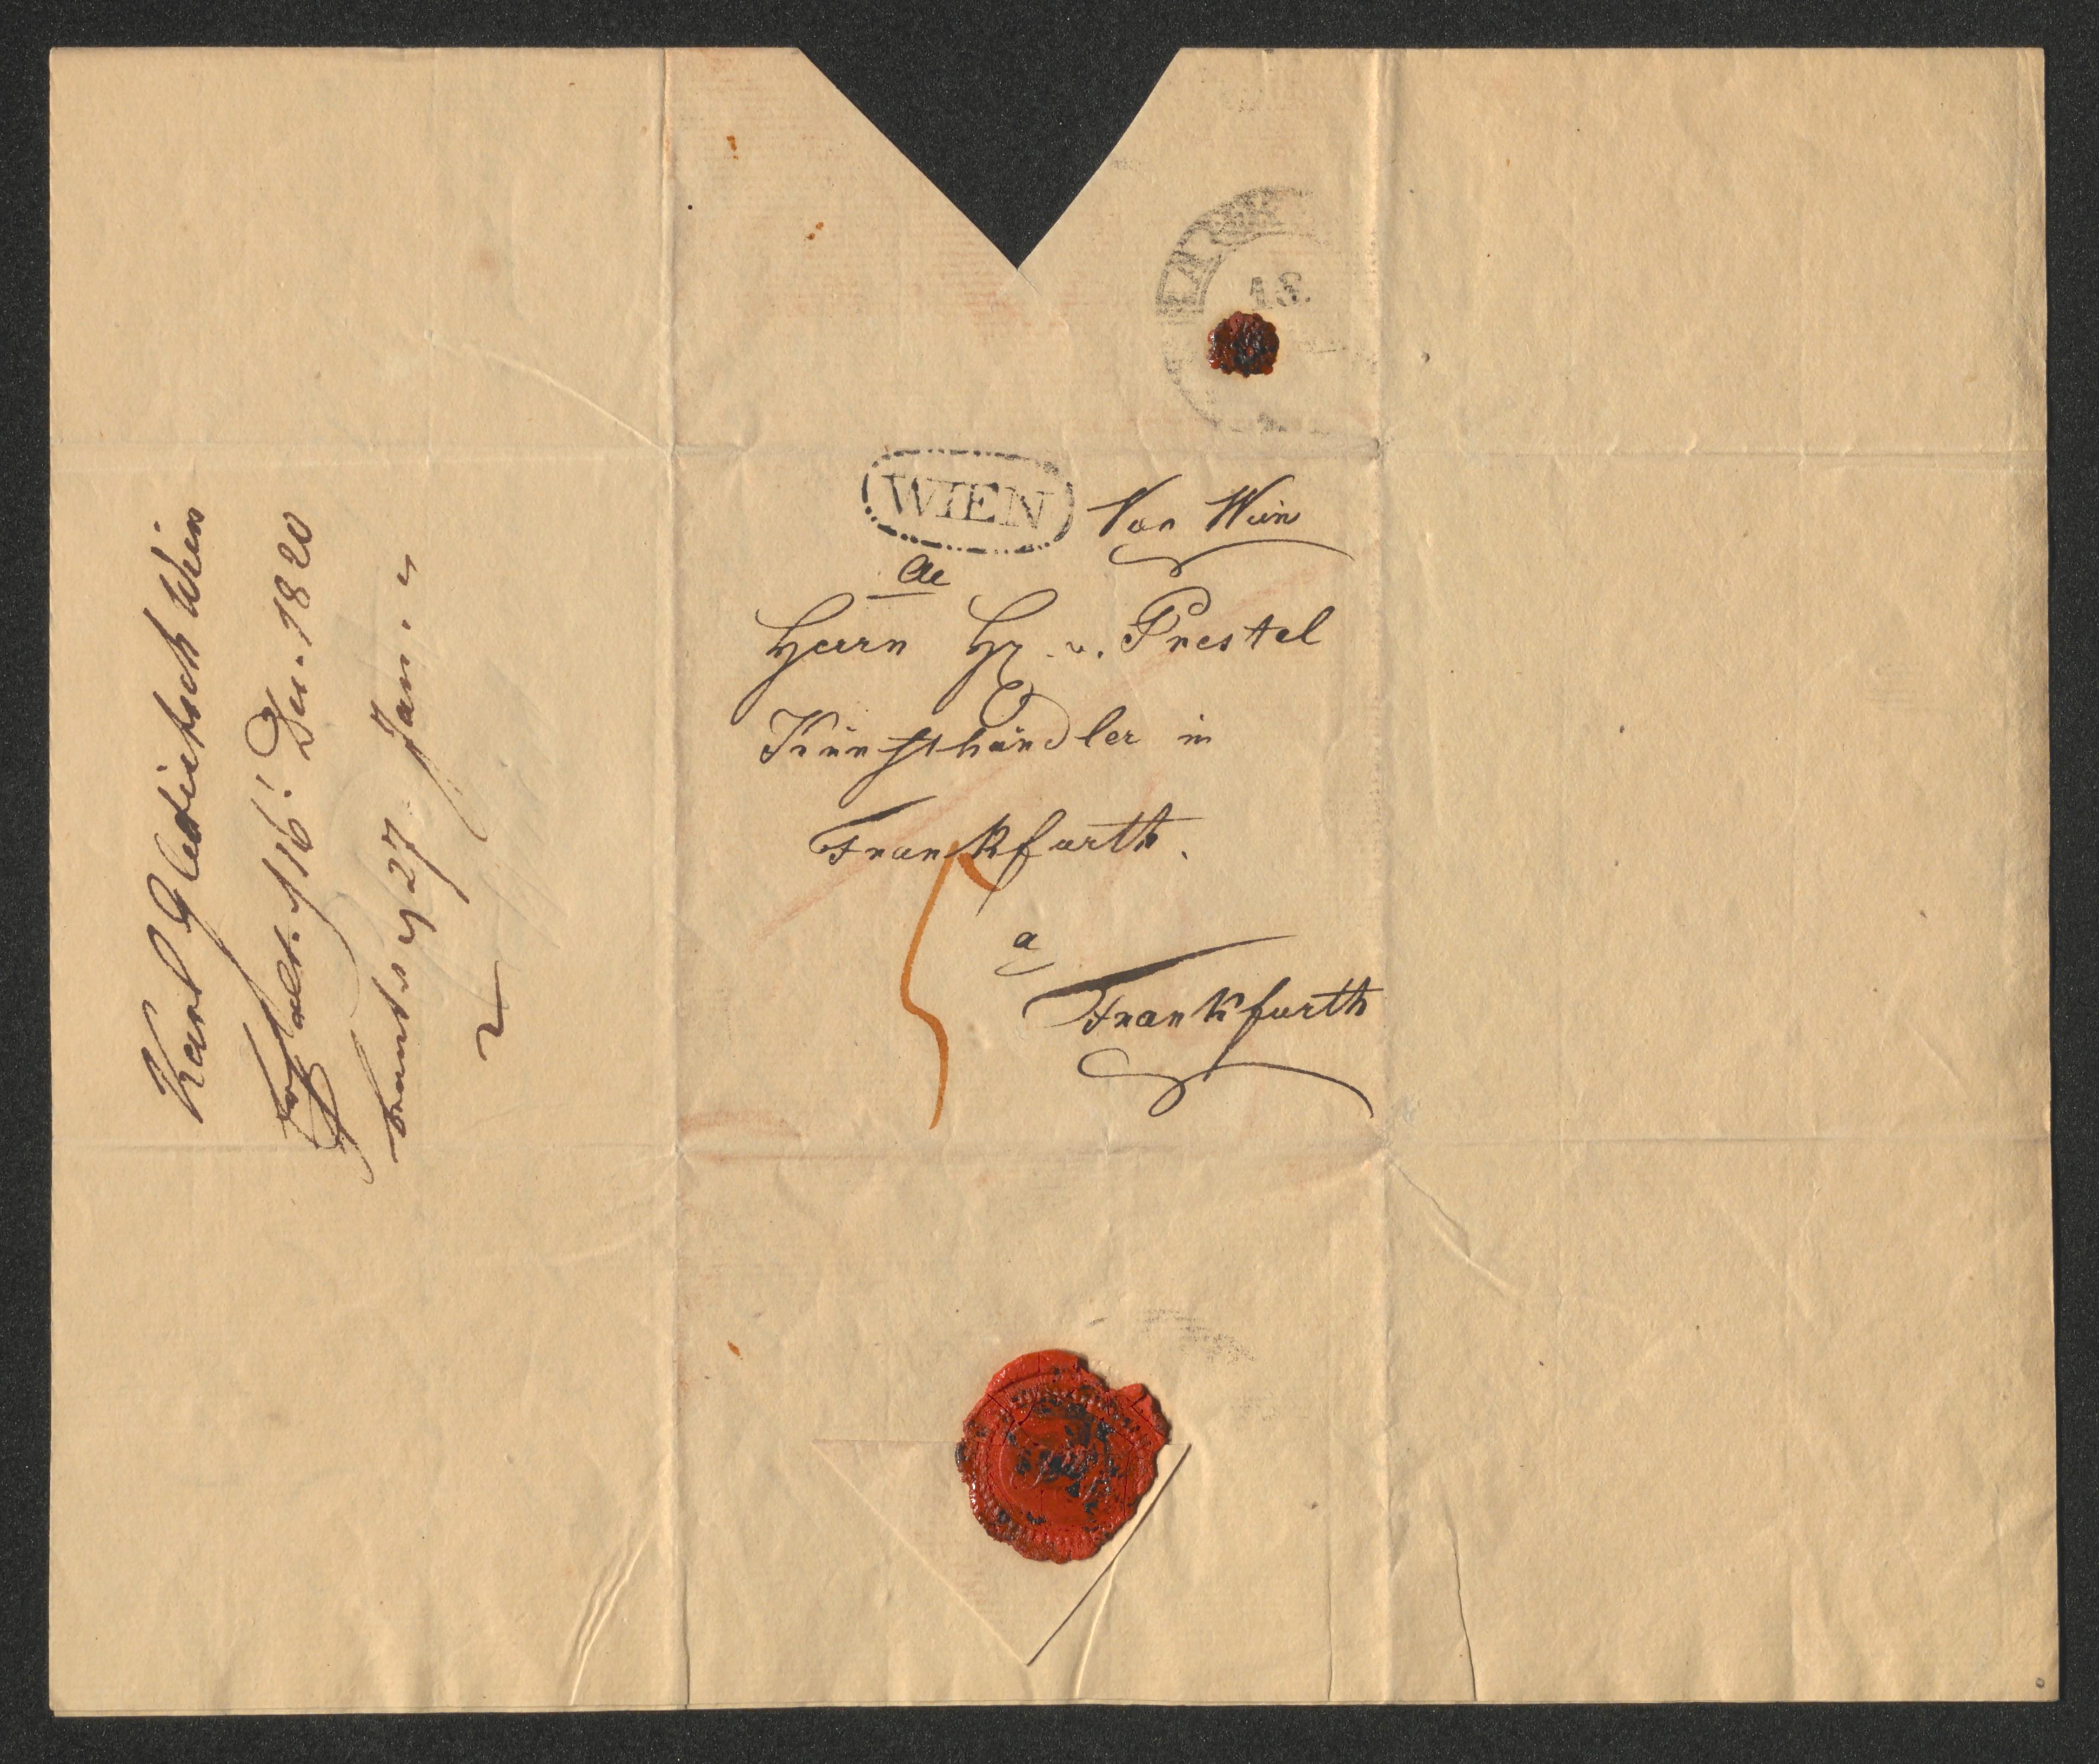 18.
WIEN
Von Wien
Herrn Hr. v. Prestel
Künsthändler in
Frankfurth.
a
Frankfurth
5
Karl Gleditsch Wien
erhalt. 16. Dec. 1820
beants 27 Jan.